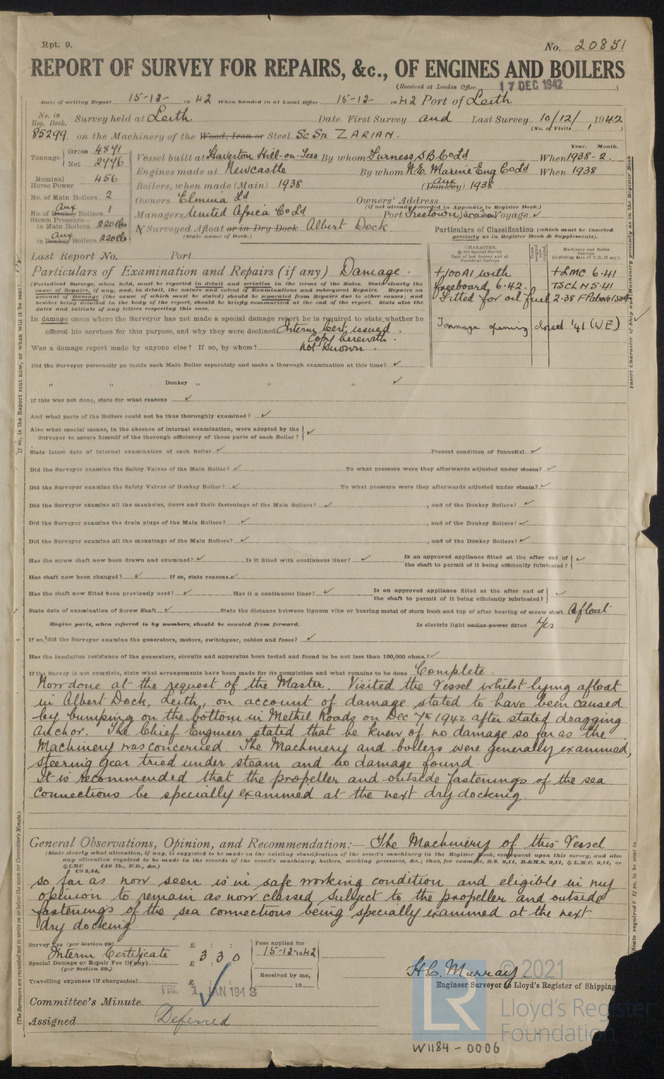 Rpt. 9.
No. 20851
REPORT OF SURVEY FOR REPAIRS, &c., OF ENGINES AND BOILERS
(Received at London Office 17 DEC 1942)
Date of writing Report 15-12- 1942 When handed in at Local Office 15-12- 1942 Port of Leith
No. in Reg. Book. Survey held at Leith Date First Survey and Last Survey 10/12/ 1942
(No. of Visits 1)
85299 on the Machinery of the Wood, Iron or Steel Sc Sr ZARIAN.
Tonnage Gross 4871
Net 2776
Vessel built at Haverton Hill-on-Tees By whom Furness S.B. Co Ld When 1938-2
Nominal Horse Power 456
Engines made at Newcastle By whom N.E. Marine Eng Co Ld When 1938
Boilers, when made (Main) 1938 (Donkey) Aux 1938
No. of Main Boilers 2
Owners Elmina Ld Owners' Address
(if not already recorded in Appendix to Register Book.)
No. of Donkey Boilers Aux 1
Managers United Africa Co Ld Port Freetown Voyage
Steam Pressure in Main Boilers 220 lbs
If Surveyed Afloat or in Dry Dock Albert Dock
(State name of Dock.)
in Donkey Boilers Aux 220 lbs
Particulars of Classification (which must be inserted precisely as in Register Book & Supplements).
Last Report No. Port
Particulars of Examination and Repairs (if any) Damage.
+100A1 with freeboard 6.42.
Fitted for oil fuel 2.38 F.P. above 150°F
+LMC 6.41
TSCL N 5.41
Damage pending closed '41 (WE)
In damage cases where the Surveyor has not made a special damage report he is required to state whether he offered his services for this purpose, and why they were declined Interim Cert. issued. Copy herewith.
Was a damage report made by anyone else? If so, by whom? Not known.
Did the Surveyor personally go inside each Main Boiler separately and make a thorough examination at this time? ✓
" " Donkey " " " ✓
If this was not done, state for what reasons ✓
And what parts of the Boilers could not be thus thoroughly examined? ✓
Also what special means, in the absence of internal examination, were adopted by the Surveyor to assure himself of the thorough efficiency of those parts of each Boiler? ✓
State latest date of internal examination of each boiler ✓ Present condition of funnel(s) ✓
Did the Surveyor examine the Safety Valves of the Main Boiler? ✓ To what pressure were they afterwards adjusted under steam? ✓
Did the Surveyor examine the Safety Valves of Donkey Boiler? ✓ To what pressure were they afterwards adjusted under steam? ✓
Did the Surveyor examine all the manholes, doors and their fastenings of the Main Boilers? ✓ , and of the Donkey Boilers? ✓
Did the Surveyor examine the drain plugs of the Main Boilers? ✓ , and of the Donkey Boilers? ✓
Did the Surveyor examine all the mountings of the Main Boilers? ✓ , and of the Donkey Boilers? ✓
Has the screw shaft now been drawn and examined? ✓ Is it fitted with continuous liner? ✓ Is an approved appliance fitted at the after end of the shaft to permit of it being efficiently lubricated? ✓
Has shaft now been changed? ✓ If so, state reasons ✓
Has the shaft now fitted been previously used? ✓ Has it a continuous liner? ✓ Is an approved appliance fitted at the after end of the shaft to permit of it being efficiently lubricated? ✓
State date of examination of Screw Shaft ✓ State the distance between lignum vitæ or bearing metal of stern bush and top of after bearing of screw shaft Afloat
Engine parts, when referred to by numbers, should be counted from forward. Is electric light and/or power fitted Yes
If so, did the Surveyor examine the generators, motors, switchgear, cables and fuses? ✓
Has the insulation resistance of the generators, circuits and apparatus been tested and found to be not less than 100,000 ohms? ✓
If the Survey is not complete, state what arrangements have been made for its completion and what remains to be done Complete.
Now done at the request of the Master. Visited the Vessel whilst lying afloat
in Albert Dock, Leith, on account of damage stated to have been caused
by bumping on the bottom in Methil Roads on Dec 7th 1942 after stated dragging
anchor. The Chief Engineer stated that he knew of no damage so far as the
Machinery was concerned. The Machinery and boilers were generally examined,
steering gear tried under steam and no damage found.
It is recommended that the propeller and outside fastenings of the sea
connections be specially examined at the next dry docking.
General Observations, Opinion, and Recommendation:— The Machinery of this Vessel
so far as now seen is in safe working condition and eligible in my
opinion to remain as now classed subject to the propeller and outside
fastenings of the sea connections being specially examined at the next
dry docking
Survey Fee (per Section 29) £ : :
Interim Certificate £ 3 : 3 : 0
Special Damage or Repair Fee (if any) (per Section 29.)
Travelling expenses (if chargeable) £ : :
Fees applied for 15-12-1942
Received by me, 19
H.C. Murray
Engineer Surveyor to Lloyd's Register of Shipping
Committee's Minute FRI. 1 JAN 1943
Assigned Deferred
W1184-0006
© 2021
Lloyd's Register
Foundation
LR